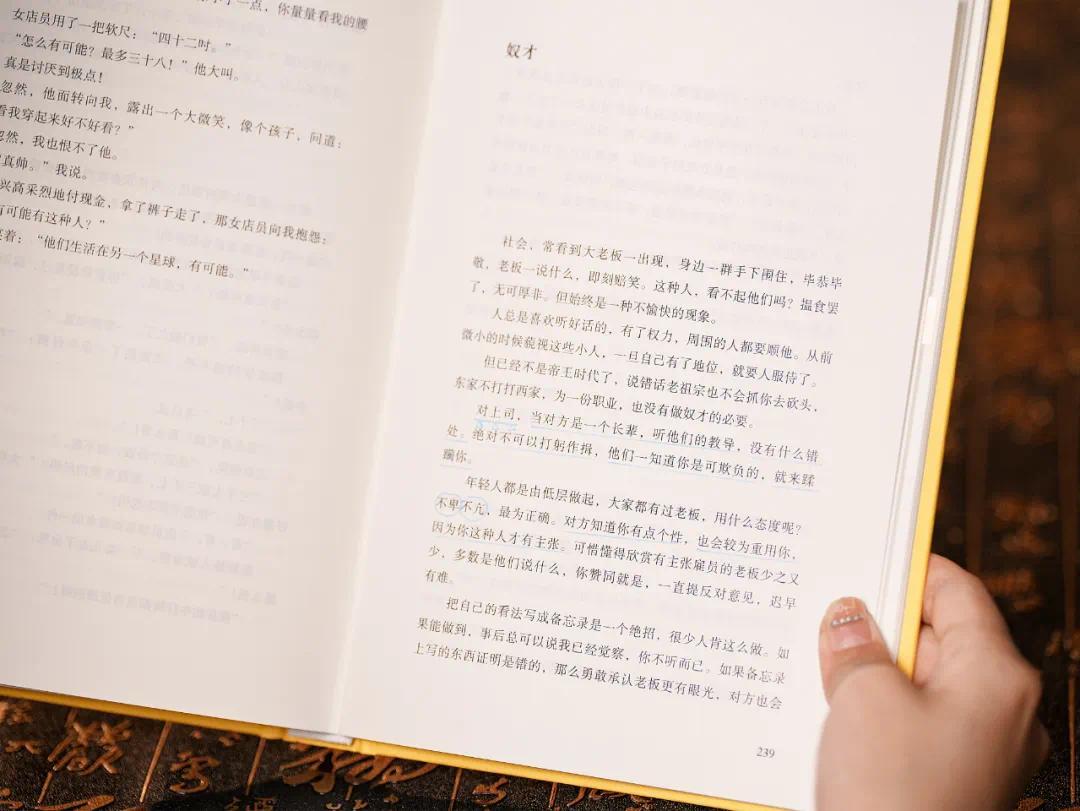 一点，你量量看我的腰
女店员用了一把软尺：“四十二吋。”
“怎么有可能？最多三十八！”他大叫。
真是讨厌到极点！
忽然，他面转向我，露出一个大微笑，像个孩子，问道：
看我穿起来好不好看？”
忽然，我也恨不了他。
“真帅。”我说。
兴高采烈地付现金，拿了裤子走了，那女店员向我抱怨：
有可能有这种人？”
着：“他们生活在另一个星球，有可能。”
奴才
社会，常看到大老板一出现，身边一群手下围住，毕恭毕
敬，老板一说什么，即刻赔笑。这种人，看不起他们吗？揾食罢
了，无可厚非。但始终是一种不愉快的现象。
人总是喜欢听好话的，有了权力，周围的人都要顺他。从前
微小的时候藐视这些小人，一旦自己有了地位，就要人服侍了。
但已经不是帝王时代了，说错话老祖宗也不会抓你去砍头，
东家不打打西家，为一份职业，也没有做奴才的必要。
对上司，当对方是一个长辈，听他们的教导，没有什么错
处。绝对不可以打躬作揖，他们一知道你是可欺负的，就来蹂
躏你。
年轻人都是由低层做起，大家都有过老板，用什么态度呢？
不卑不亢，最为正确。对方知道你有点个性，也会较为重用你，
因为你这种人才有主张。可惜懂得欣赏有主张雇员的老板少之又
少，多数是他们说什么，你赞同就是，一直提反对意见，迟早
有难。
把自己的看法写成备忘录是一个绝招，很少人肯这么做。如
果能做到，事后总可以说我已经觉察，你不听而已。如果备忘录
上写的东西证明是错的，那么勇敢承认老板更有眼光，对方也会
239